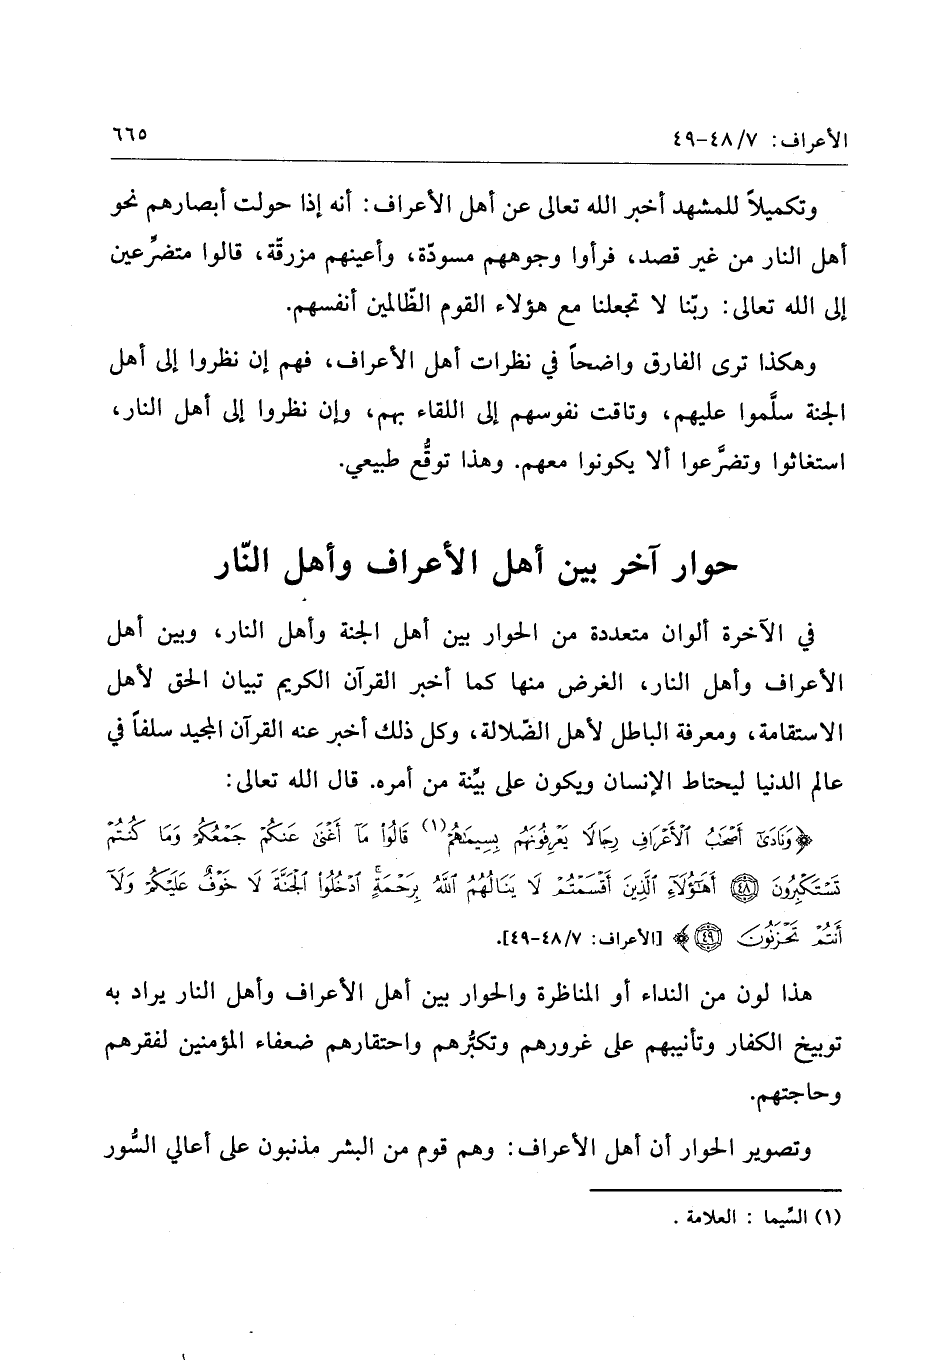 الأعراف: ٧/ ٤٨-٤٩
٦٦٥
وتكميلاً للمشهد أخبر الله تعالى عن أهل الأعراف: أنه إذا حولت أبصارهم نحو
أهل النار من غير قصد، فرأوا وجوههم مسودّة، وأعينهم مزرقّة، قالوا متضرِّعين
إلى الله تعالى: ربّنا لا تجعلنا مع هؤلاء القوم الظّالمين أنفسهم.
وهكذا ترى الفارق واضحاً في نظرات أهل الأعراف، فهم إن نظروا إلى أهل
الجنة سلَّموا عليهم، وتاقت نفوسهم إلى اللقاء بهم، وإن نظروا إلى أهل النار،
استغاثوا وتضرَّعوا ألا يكونوا معهم. وهذا توقُّع طبيعي.
حوار آخر بين أهل الأعراف وأهل النّار
في الآخرة ألوان متعددة من الحوار بين أهل الجنة وأهل النار، وبين أهل
الأعراف وأهل النار، الغرض منها كما أخبر القرآن الكريم تبيان الحق لأهل
الاستقامة، ومعرفة الباطل لأهل الضّلالة، وكل ذلك أخبر عنه القرآن المجيد سلفاً في
عالم الدنيا ليحتاط الإنسان ويكون على بيِّنة من أمره. قال الله تعالى:
﴿وَنَادَىٰٓ أَصْحَٰبُ ٱلْأَعْرَافِ رِجَالًا يَعْرِفُونَهُم بِسِيمَىٰهُمْ(١) قَالُوا۟ مَآ أَغْنَىٰ عَنكُمْ جَمْعُكُمْ وَمَا كُنتُمْ
تَسْتَكْبِرُونَ ۝٤٨ أَهَٰٓؤُلَآءِ ٱلَّذِينَ أَقْسَمْتُمْ لَا يَنَالُهُمُ ٱللَّهُ بِرَحْمَةٍ ۚ ٱدْخُلُوا۟ ٱلْجَنَّةَ لَا خَوْفٌ عَلَيْكُمْ وَلَآ
أَنتُمْ تَحْزَنُونَ ۝٤٩﴾ [الأعراف: ٧/ ٤٨-٤٩].
هذا لون من النداء أو المناظرة والحوار بين أهل الأعراف وأهل النار يراد به
توبيخ الكفار وتأنيبهم على غرورهم وتكبُّرهم واحتقارهم ضعفاء المؤمنين لفقرهم
وحاجتهم.
وتصوير الحوار أن أهل الأعراف: وهم قوم من البشر مذنبون على أعالي السُّور
(١) السِّيما : العلامة .